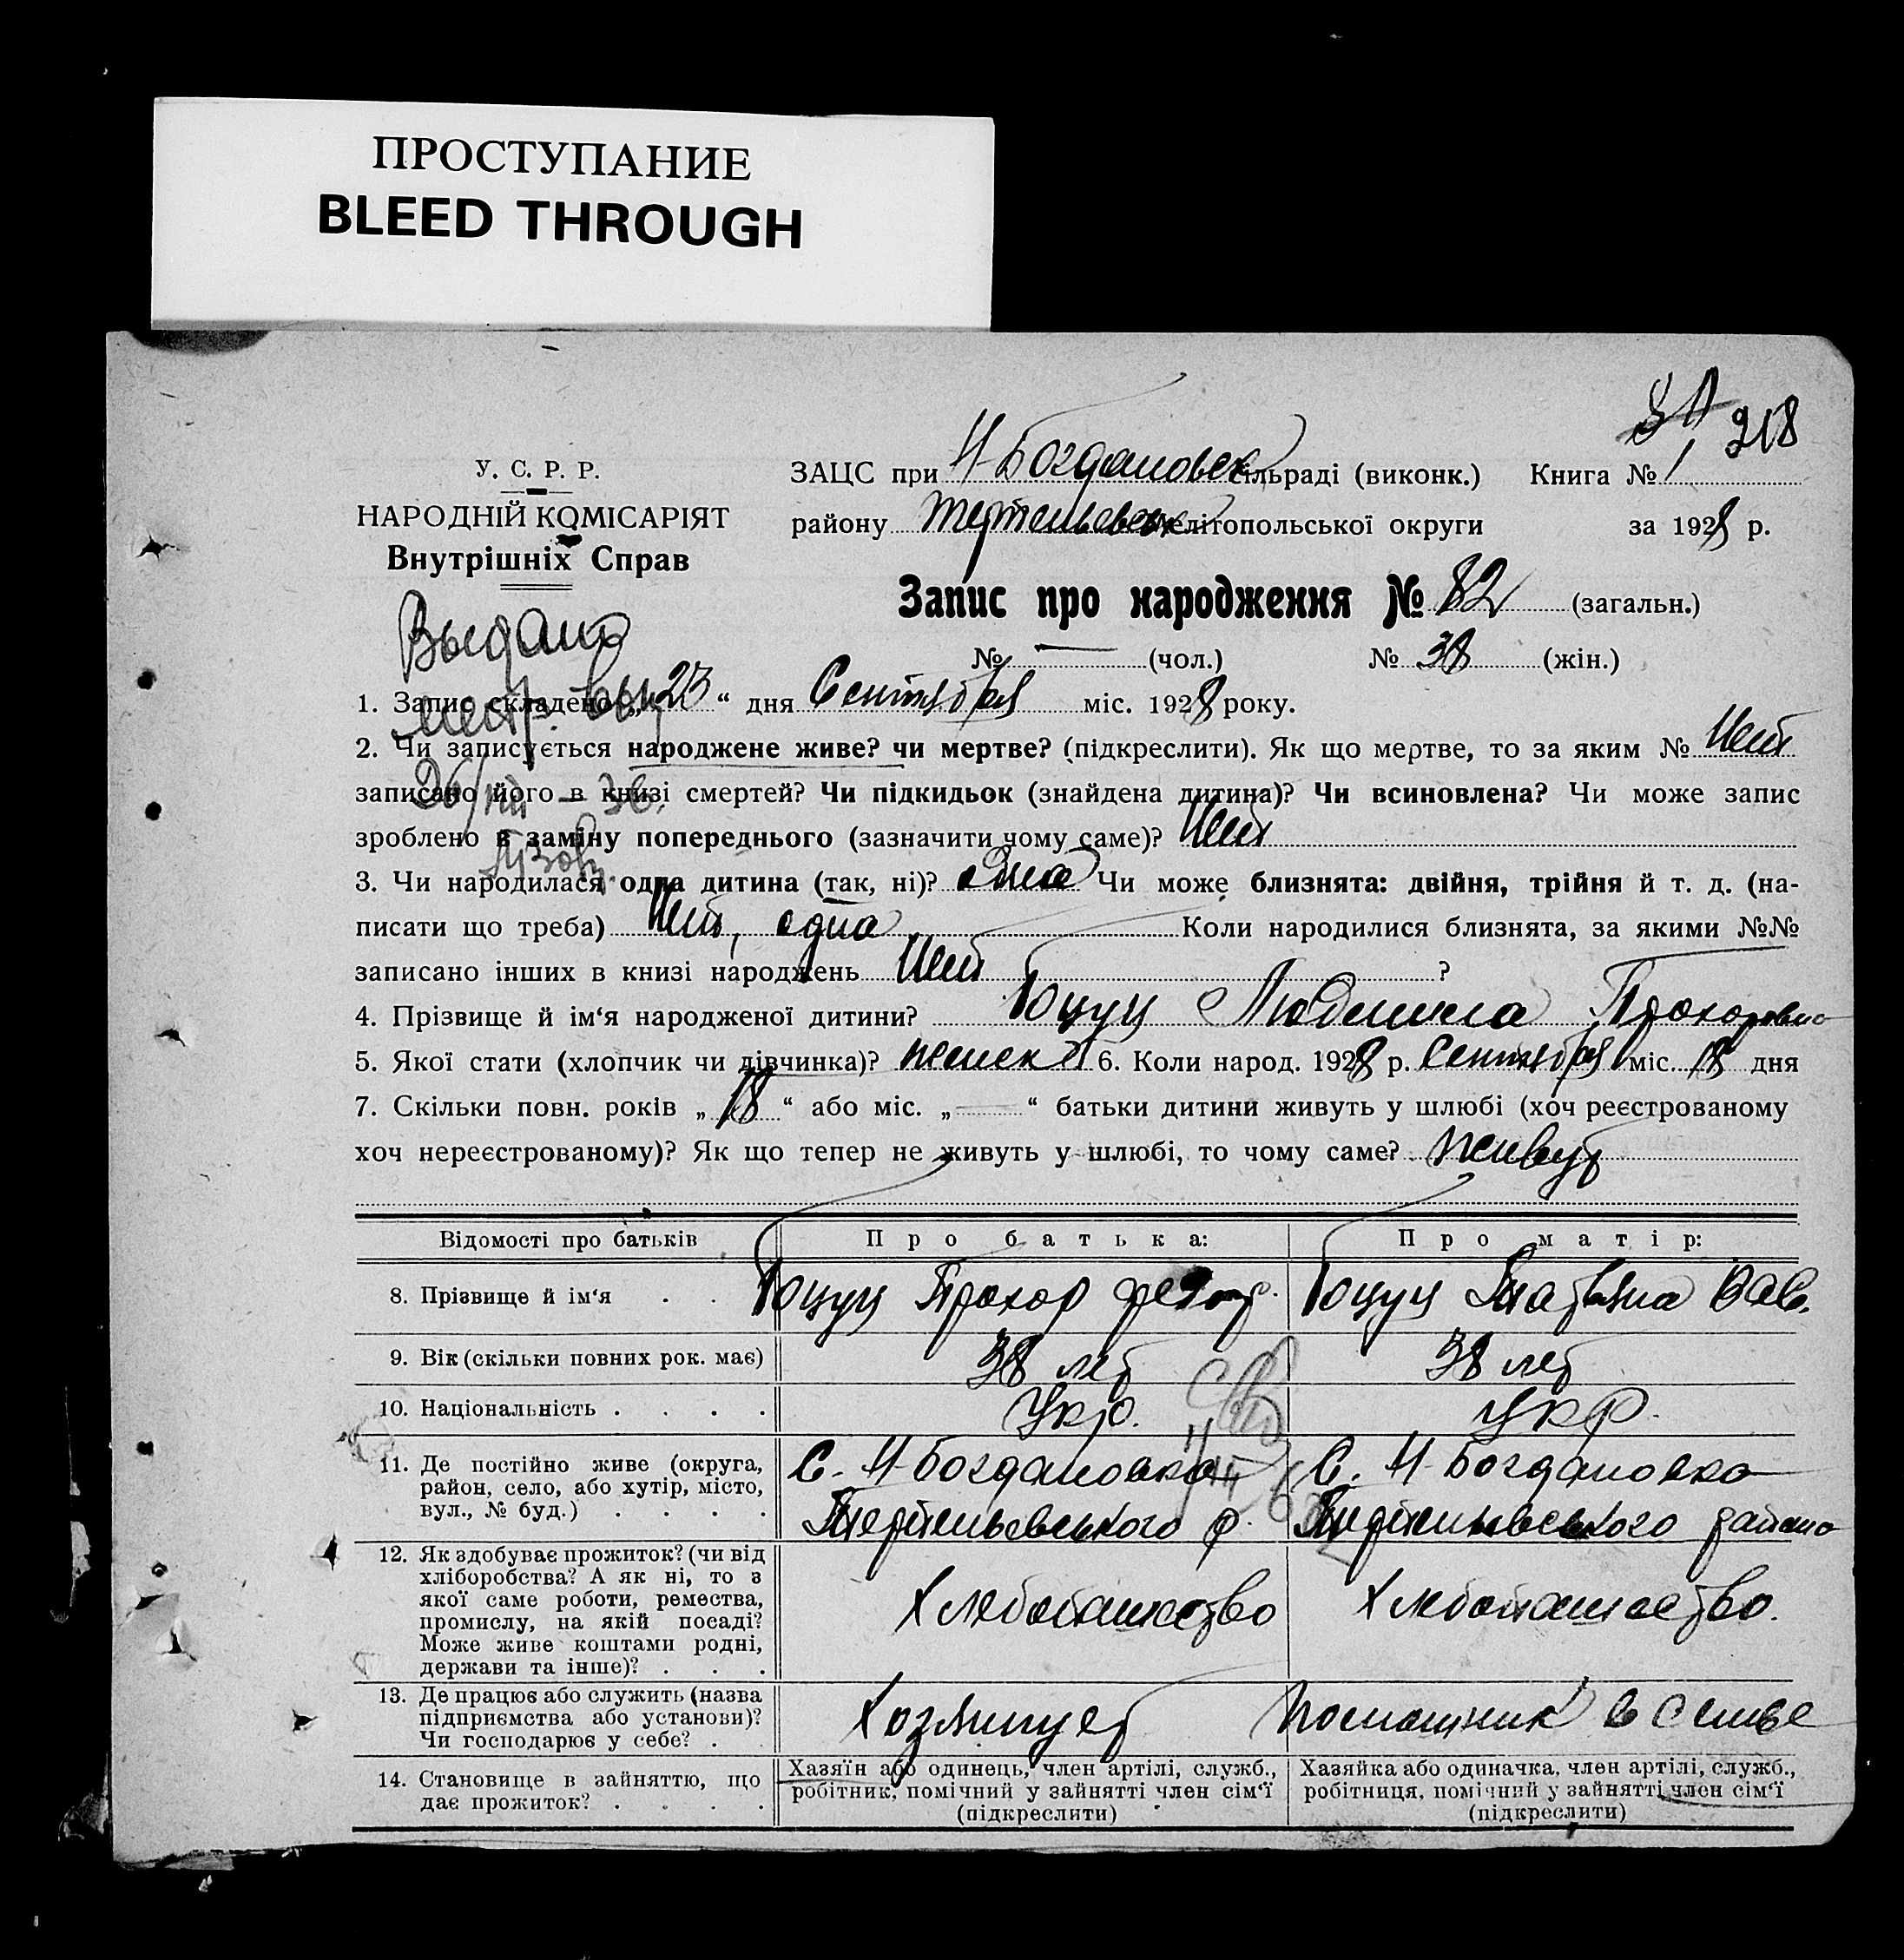 ПРОСТУПАНИЕ
BLEED THROUGH
218
У. С. Р. Р.
НАРОДНІЙ КОМІСАРІЯТ
Внутрішніх Справ
ЗАЦС при Н-Богдановск сільраді (виконк.) Книга № 1
району мелітопольської округи за 1928 р.
Запис про народження № 82 (загальн.)
№ — (чол.) № 38 (жін.)
Выдано
1. Запис складено „23“ дня Сентября міс. 1928 року.
2. Чи записується народжене живе? чи мертве? (підкреслити). Як що мертве, то за яким № Нет
записано його в книзі смертей? Чи підкидьок (знайдена дитина)? Чи всиновлена? Чи може запис
зроблено в заміну попереднього (зазначити чому саме)? Нет
3. Чи народилася одна дитина (так, ні)? одна Чи може близнята: двійня, трійня й т. д. (на-
писати що треба) Нет, одна Коли народилися близнята, за якими №№
записано інших в книзі народжень Нет ?
4. Прізвище й ім‘я народженої дитини? Гоцуц Людмила Прохоровна
5. Якої стати (хлопчик чи дівчинка)? женск 6. Коли народ. 1928 р. Сентября міс. 18 дня
7. Скільки повн. років „18“ або міс. „—“ батьки дитини живуть у шлюбі (хоч реєстрованому
хоч нереєстрованому)? Як що тепер не живуть у шлюбі, то чому саме? живут
Відомості про батьків
Про батька:
Про матір:
8. Прізвище й ім‘я . .
Гоцуц Прохор
Гоцуц Татьяна
9. Вік (скільки повних рок. має)
38 лет
38 лет
10. Національність . . . .
Укр.
Укр.
11. Де постійно живе (округа,
район, село, або хутір, місто,
вул., № буд.) . . . .
С. Н-Богдановка
р.
С. Н-Богдановка
района
12. Як здобуває прожиток? (чи від
хліборобства? А як ні, то з
якої саме роботи, ремества,
промислу, на якій посаді?
Може живе коштами родні,
держави та інше)? . . .
Хлебопашество
Хлебопашество.
13. Де працює або служить (назва
підприємства або установи)?
Чи господарює у себе? .
Хозяинует
Помощник в семье
14. Становище в зайняттю, що
дає прожиток? . . . .
Хазяїн або одинець, член артілі, служб.,
робітник, помічний у зайнятті член сім‘ї
(підкреслити)
Хазяйка або одиначка, член артілі, служб.,
робітниця, помічний у зайнятті член сім‘ї
(підкреслити)